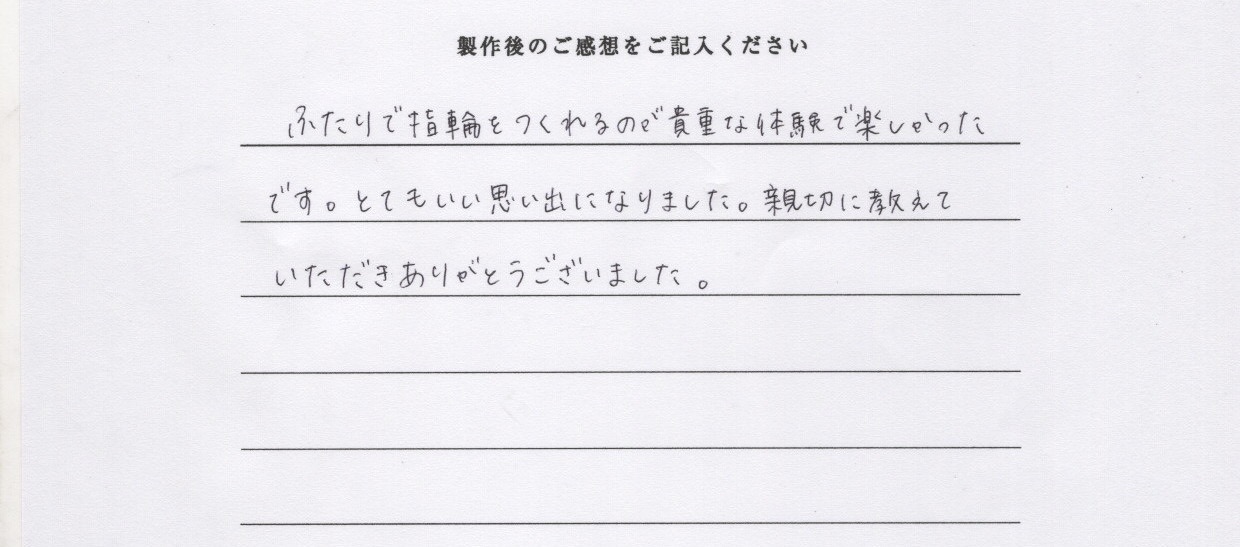 製作後のご感想をご記入ください
ふたりで指輪をつくれるのが貴重な体験で楽しかった
です。とてもいい思い出になりました。親切に教えて
いただきありがとうございました。